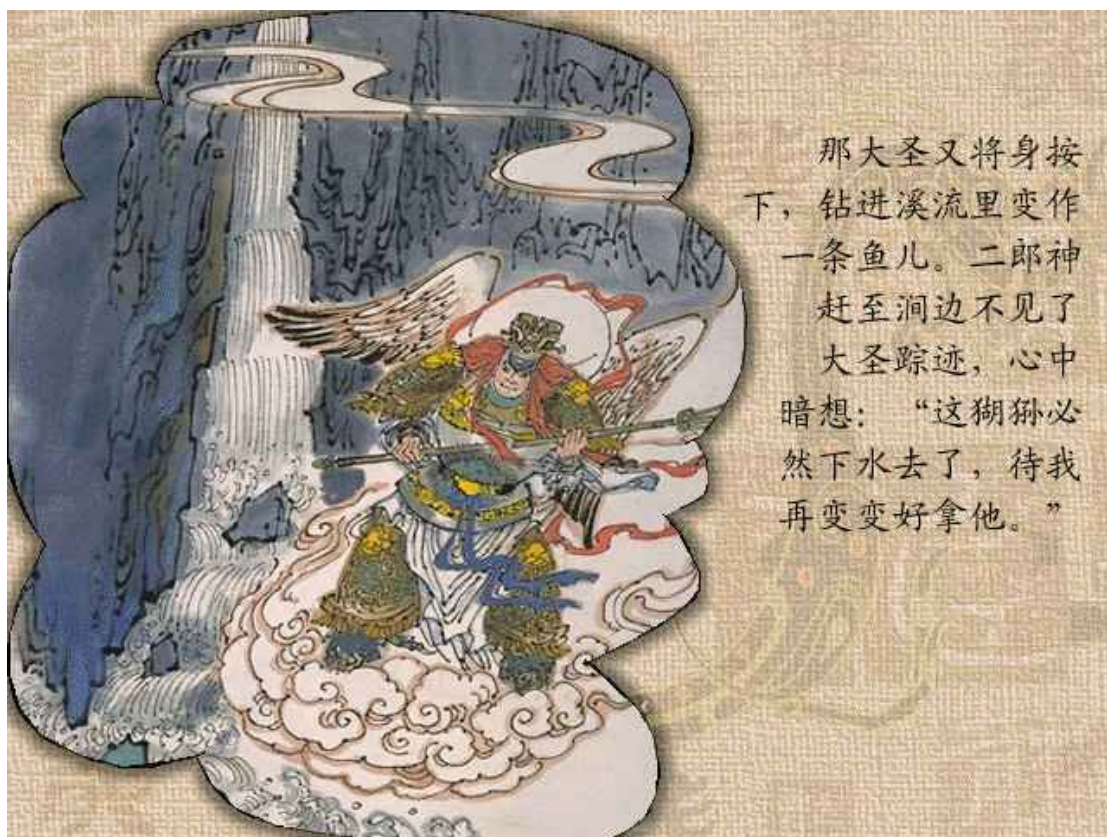 那大圣又将身按
下，钻进溪流里变作
一条鱼儿。二郎神
赶至涧边不见了
大圣踪迹，心中
暗想：“这猢狲必
然下水去了，待我
再变变好拿他。”